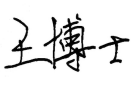 王博士